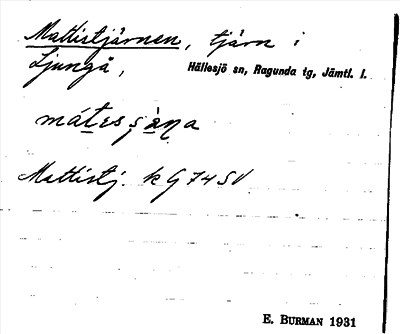 Mattistjärnen, tjärn i
Ljungå, Hällesjö sn, Ragunda tg, Jämtl. l.
mátesʂàṇa
Mattistj. k G 74 SV
E. BURMAN 1931